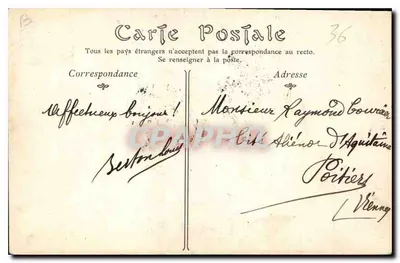 B
36
Carte Postale
Tous les pays étrangers n'acceptent pas la correspondance au recto.
Se renseigner à la poste.
Correspondance
Adresse
Affectueux bonjour!
Monsieur Raymond
Cité Aliénor d'Aquitaine
Poitiers
(Vienne)
DELCAMPE